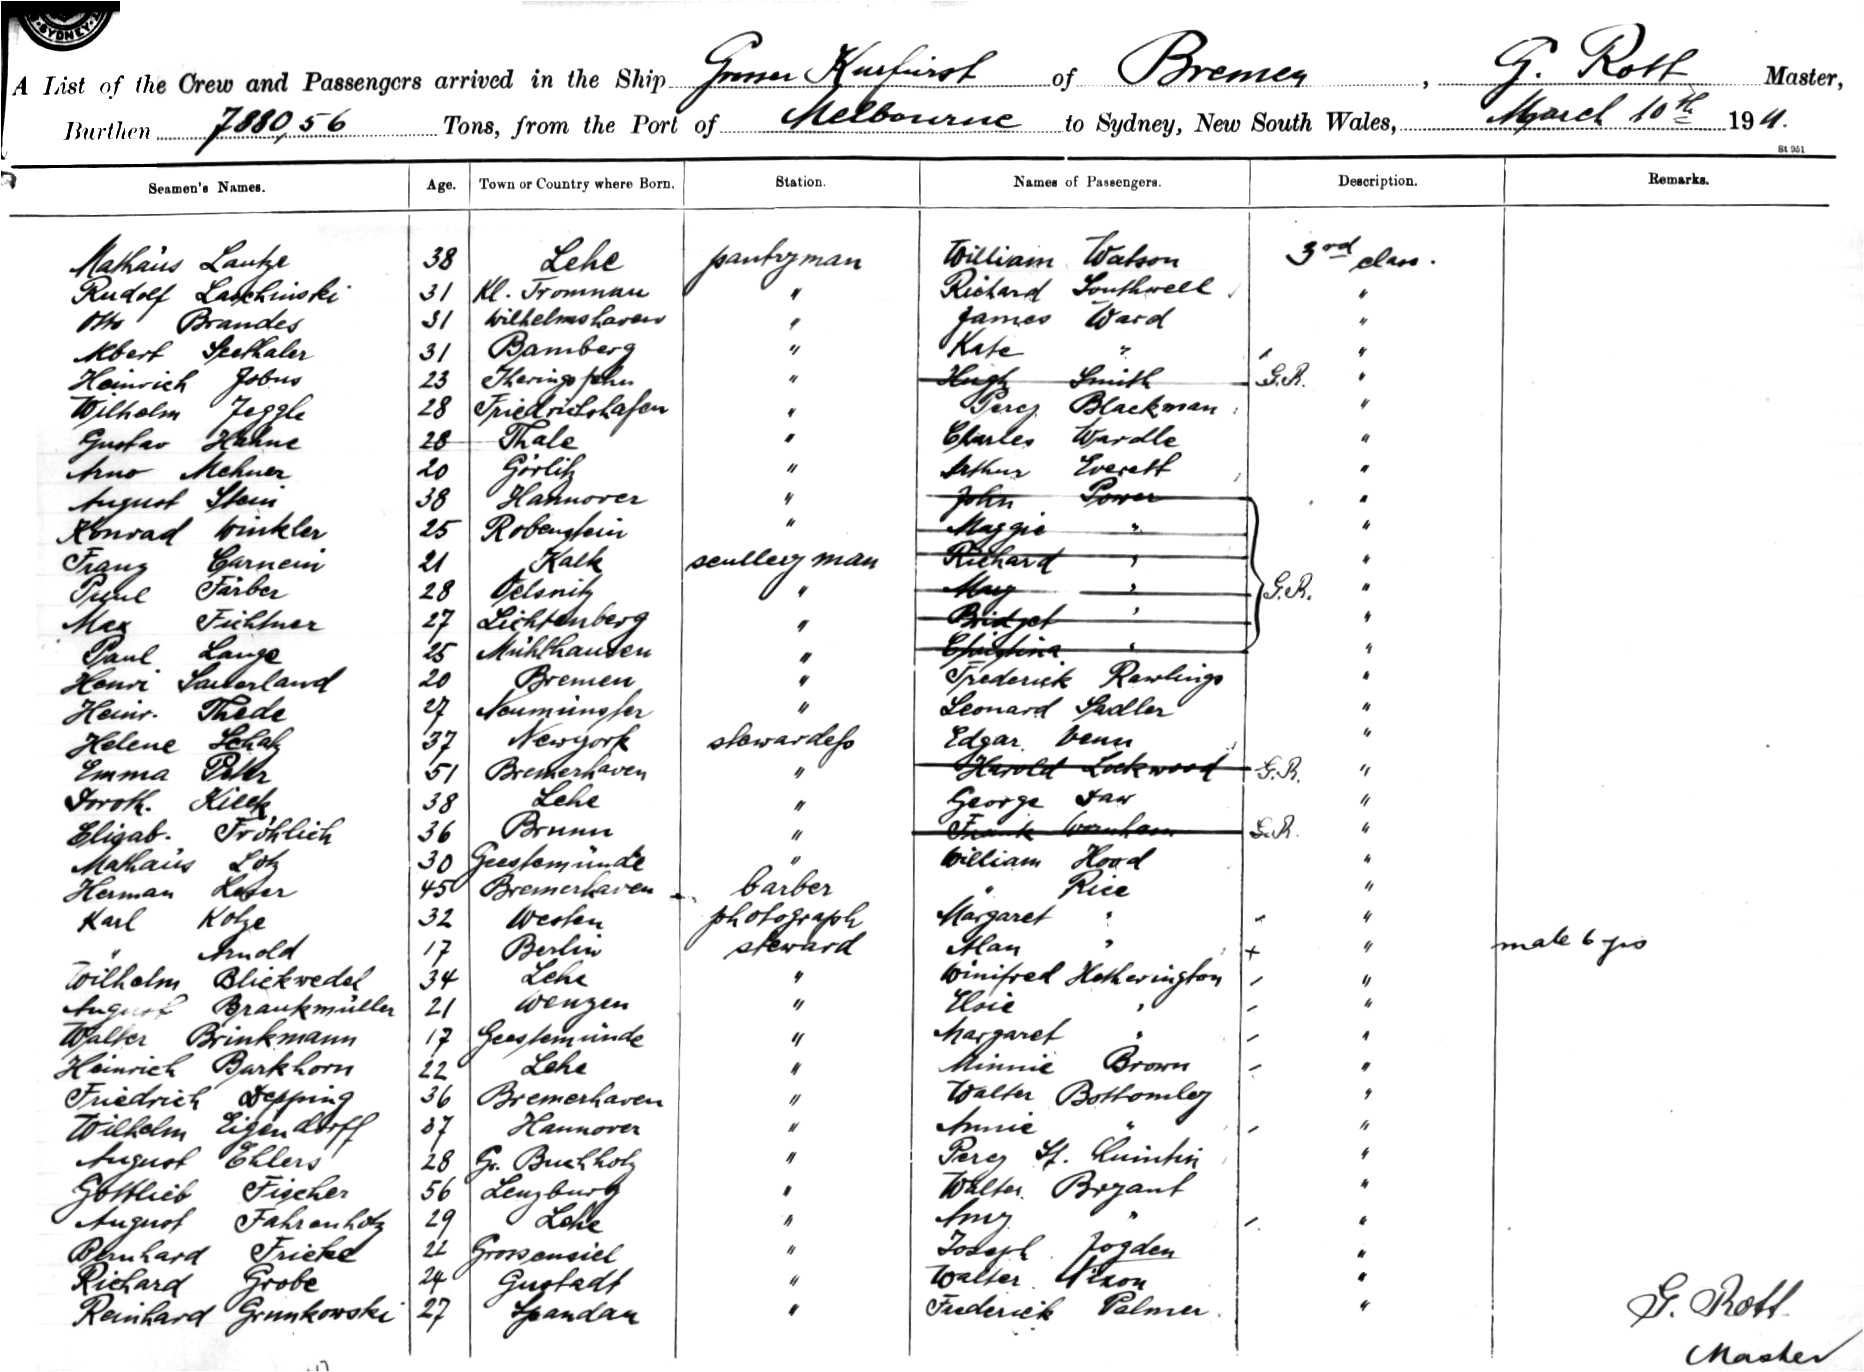 SYDNEY
A List of the Crew and Passengers arrived in the Ship Grosser Kurfürst of Bremen, G. Rott Master,
Burthen 7880,56 Tons, from the Port of Melbourne to Sydney, New South Wales, March 10th 1911.
St 951
Seamen's Names. Age. Town or Country where Born. Station. Names of Passengers. Description. Remarks.
Mathäus Lautze 38 Lehe pantryman William Watson 3rd class.
Rudolf Laschinski 31 Kl. Tromnau " Richard Southwell "
Otto Brandes 31 Wilhelmshaven " James Ward "
Albert Seethaler 31 Bamberg " Kate " "
Heinrich Jobus 23 Iheringsfehn " Hugh Smith G.R. "
Wilhelm Jeggle 28 Friedrichshafen " Percy Blackman "
Gustav Hahne 28 Thale " Charles Wardle "
Arno Mehner 20 Görlitz " Arthur Everett "
August Stein 38 Hannover " John Power "
Konrad Winkler 25 Robenstein " Maggie " "
Franz Garnein 21 Kalk scullery man Richard " "
Paul Färber 28 Oelsnitz " Mary " G.R. "
Max Fichtner 27 Lichtenberg " Bridget " "
Paul Lange 25 Mühlhausen " Christina " "
Henri Sauerland 20 Bremen " Frederick Rawlings "
Heinr. Thede 27 Neumünster " Leonard Sadler "
Helene Schatz 37 Newyork stewardess Edgar Venn "
Emma Peter 51 Bremerhaven " Harold Lockwood G.R. "
Doroth. Kieck 38 Lehe " George Daw "
Elisab. Fröhlich 36 Brunn " Frank G.R. "
Mathäus Lotz 30 Geestemünde " William Hood "
Herman Leser 45 Bremerhaven barber " Rice "
Karl Kotze 32 Westen photograph Margaret " "
" Arnold 17 Berlin steward Alan " + " male 6 yrs
Wilhelm Blickwedel 34 Lehe " Winifred Hetherington "
August Braukmüller 21 Wenzen " Elsie " "
Walter Brinkmann 17 Geestemünde " Margaret " "
Heinrich Barkhorn 22 Lehe " Minnie Brown "
Friedrich Depping 36 Bremerhaven " Walter Bottomley "
Wilhelm Eigendorff 37 Hannover " Annie " "
August Ehlers 28 Gr. Buchholz " Percy St. Quintin "
Gottlieb Fischer 56 Lenzburg " Walter Bryant "
August Fahrenholz 29 Lehe " Amy " "
Bernhard Fricke 21 Grossensiel " Joseph Jogden "
Richard Grobe 24 Gustadt " Walter Nixon "
Reinhard Grunkowski 27 Spandau " Frederick Palmer "
G. Rott
Master